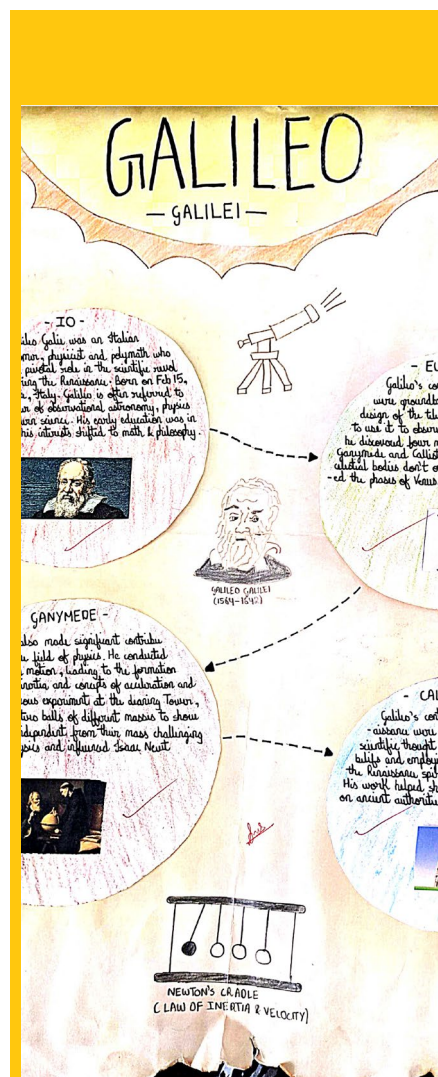 GALILEO
— GALILEI —
- IO -
ileo Galii was an Italian
omer, physicist and polymath who
pivotal role in the scientific revol
ring the Renaissance. Born on Feb 15,
a, Italy. Galileo is often referred to
er of observational astronomy, physics
ern science. His early education was in
his interests shifted to math & philosophy.
- EU
Galileo's co
were groundb
design of the tel
to use it to obser
he discovered four m
Ganymede and Callist
celestial bodies don't o
-ed the phases of Venus
GALILEO GALILEI
(1564-1642)
GANYMEDE -
also made significant contribu
field of physics. He conducted
motion, leading to the formation
inertia and concepts of acceleration and
ous experiment at the leaning Tower,
two balls of different masses to show
independent from their mass challenging
ysics and influenced Isaac Newt
- CAL
Galileo's cont
-aissance were
scientific thought
beliefs and employi
the Renaissance spir
His work helped sh
on ancient authoritie
NEWTON'S CRADLE
(LAW OF INERTIA & VELOCITY)